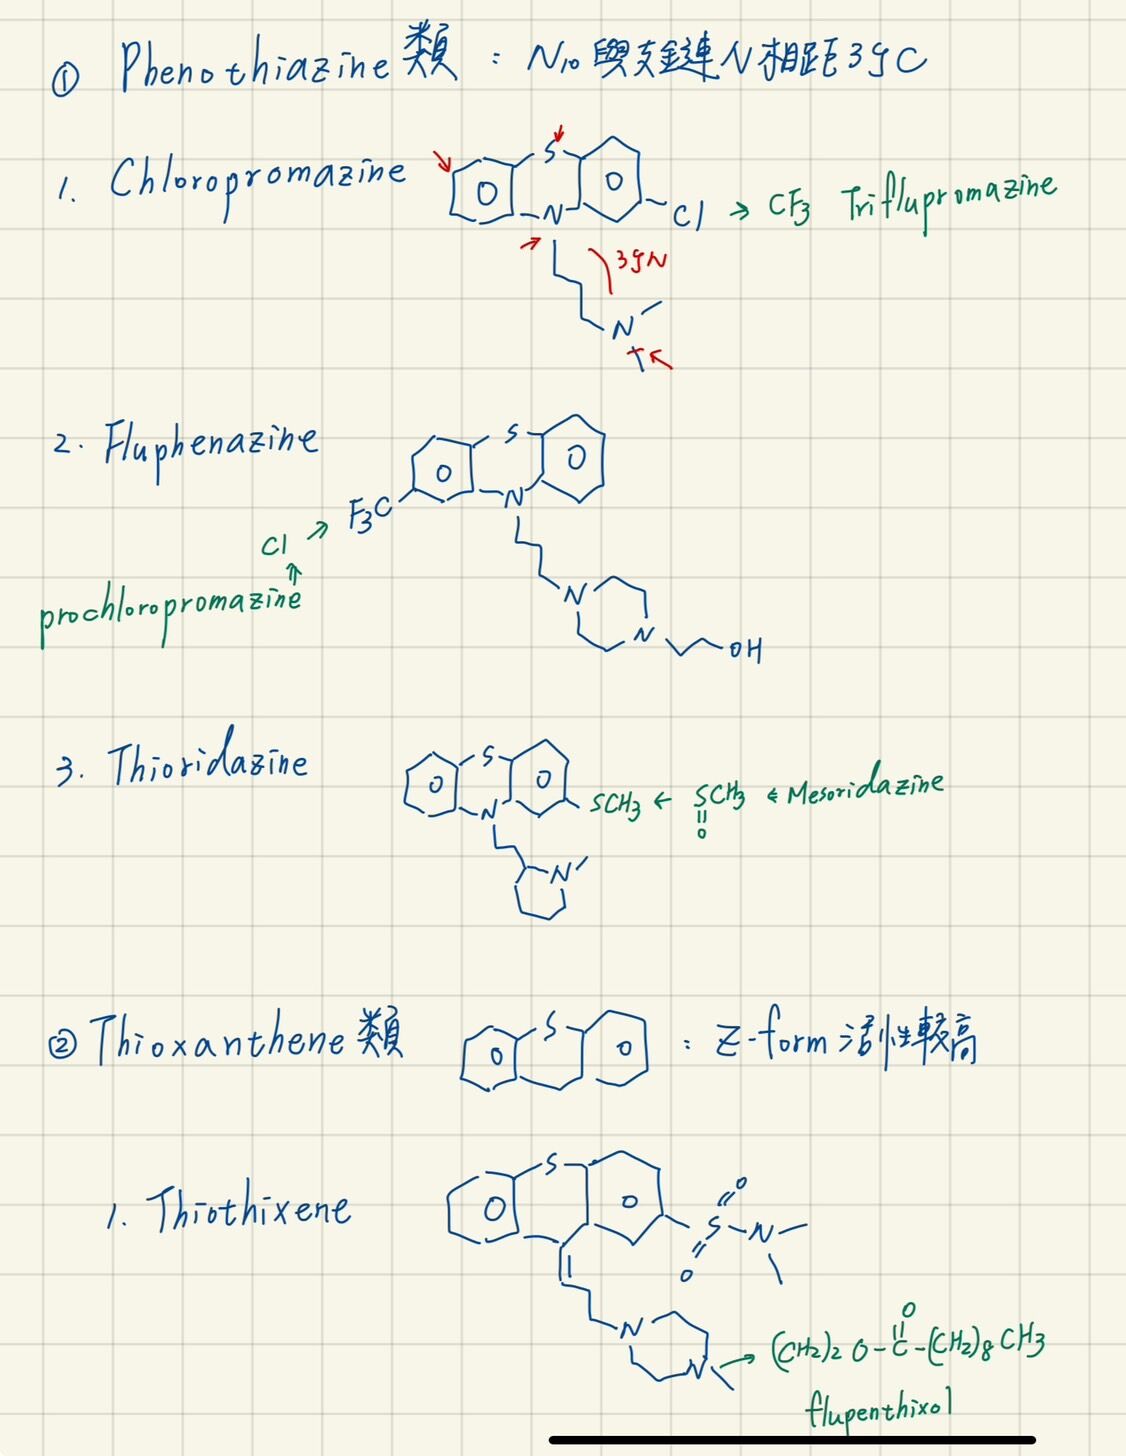 ① Phenothiazine類 : N10與支鏈N相距3個C
1. Chloropromazine
S
N
Cl → CF3 Triflupromazine
3個N
N
2. Fluphenazine
S
N
F3C
Cl
prochloropromazine
N
N
OH
3. Thioridazine
S
N
SCH3 ← SCH3 ← Mesoridazine
O
N
② Thioxanthene類
S
: Z-form 活性較高
1. Thiothixene
S
O
S-N
O
N
N
O
→ (CH2)2 O-C-(CH2)8CH3
flupenthixol